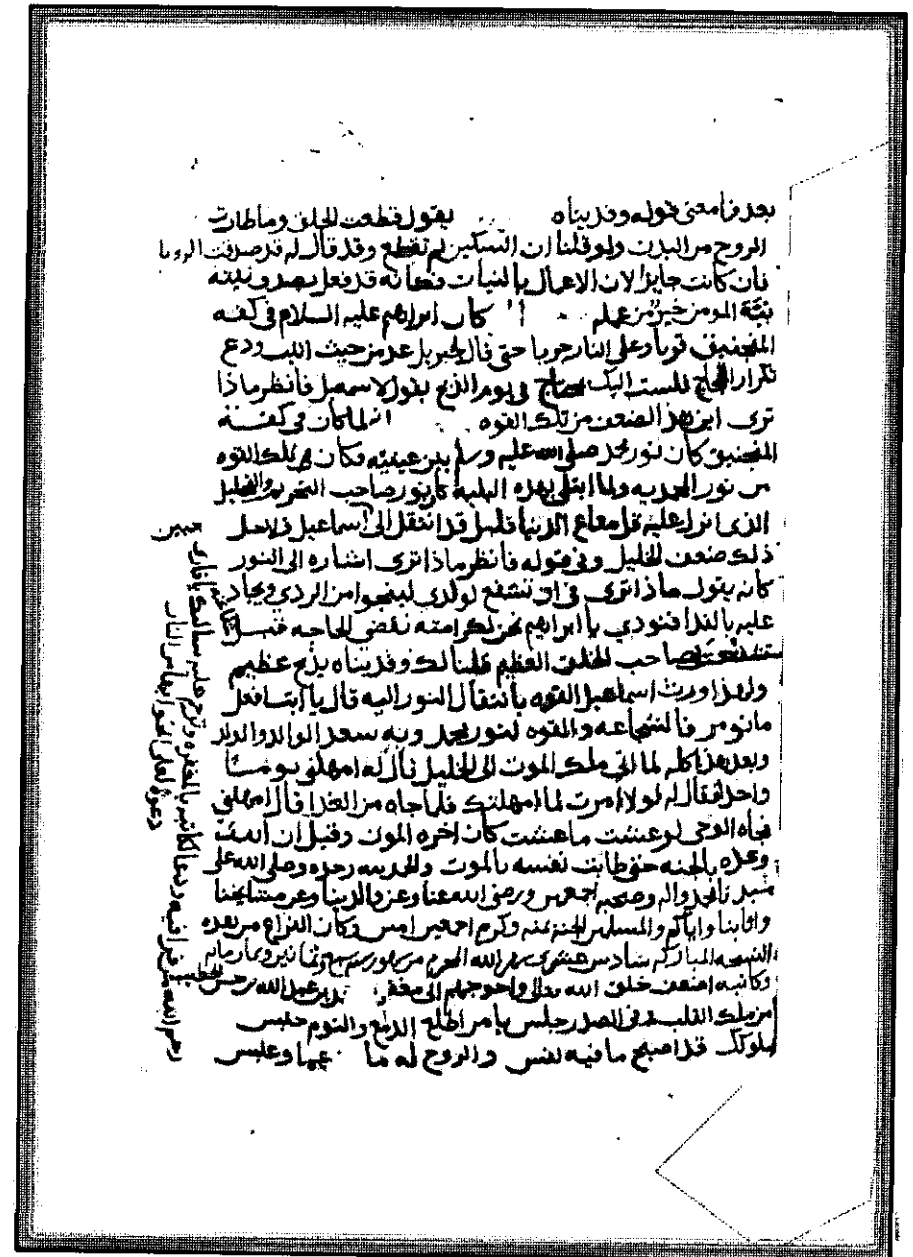 بعد فما معنى قوله وفديناه يقول قطعت الحلق وما طارت
الروح من البدن ولو قلنا ان السكين لم تقطع وقد قال له قد صدقت الرويا
فان كانت جايزا لان الاعمال بالنيات فكانه قد فعل بصدق نيته
نيّة المومن خير من عمله كان ابراهيم عليه السلام في كفه
المنجنيق قويا وعلى النار جريا حتى قال لجبريل عد من حيث اتيت ودع
تكرار اللجاج فلست اليك محتاج وفي يوم الذبح يقول لاسمعيل فانظر ماذا
ترى اين هذا الضعف من تلك القوه انه لما كان في كفة
المنجنيق كان نور محمد صلى الله عليه وسلم بين عينيه فكان له تلك القوه
من نور المحمديه ولما ابتلي بهذه البلية كان نور صاحب التحريم والتحليل
الذى انزل عليه قل متاع الدنيا قليل قد انتقل الى اسماعيل فلاجل
ذلك ضعف الخليل وفي قوله فانظر ماذا ترى اشاره الى النور
كانه يقول ماذا ترى في ان تشفع لولدي لينجوا من الردى ويجاد
عليه بالفدا فنودي يا ابراهيم نحن لكرامته نقضي الحاجه
صاحب الخلق العظيم قلنا لك وفديناه بذبح عظيم
ولهذا ورث اسماعيل القوه بانتقال النور اليه قال يا ابت افعل
ما تومر فالشجاعه والقوه لنور محمد وبه سعد الوالد والولد
وبعد هذا كله لما اتى ملك الموت الى الخليل قال له امهلني يوما
واحدا فقال له لولا امرت لما امهلتك فلما جاه من الغد قال امهلني
فجاه الوحى لو عشت ما عشت كان اخره الموت وقيل ان الله
وعده بالجنه حتى طابت نفسه بالموت والحمد لله وحده وصلى الله على
سيدنا محمد واله وصحبه اجمعين ورضى الله عنا وعن والدينا وعن مشايخنا
واثابنا واياكم والمسلمين الجنة بمنه وكرمه اجمعين امين وكان الفراغ من هذه
النسخه المباركه سادس عشرى شهر الله المحرم من شهور سنه سبع وثمانين وثمانمايه
وكاتبه اضعف خلق الله تعالى واحوجهم الى عبد الله
من ملك القلب في الصدر جلس يا من اطلع الدمع والنوم حبس
ملوكك قد اصبح ما فيه نفس والروح له ما
رحم الله من قرا فيه ودعا لكاتبه بالمغفره وترحم عليه سالتك يا قارى
دعوة لعلى انجو بها من النار